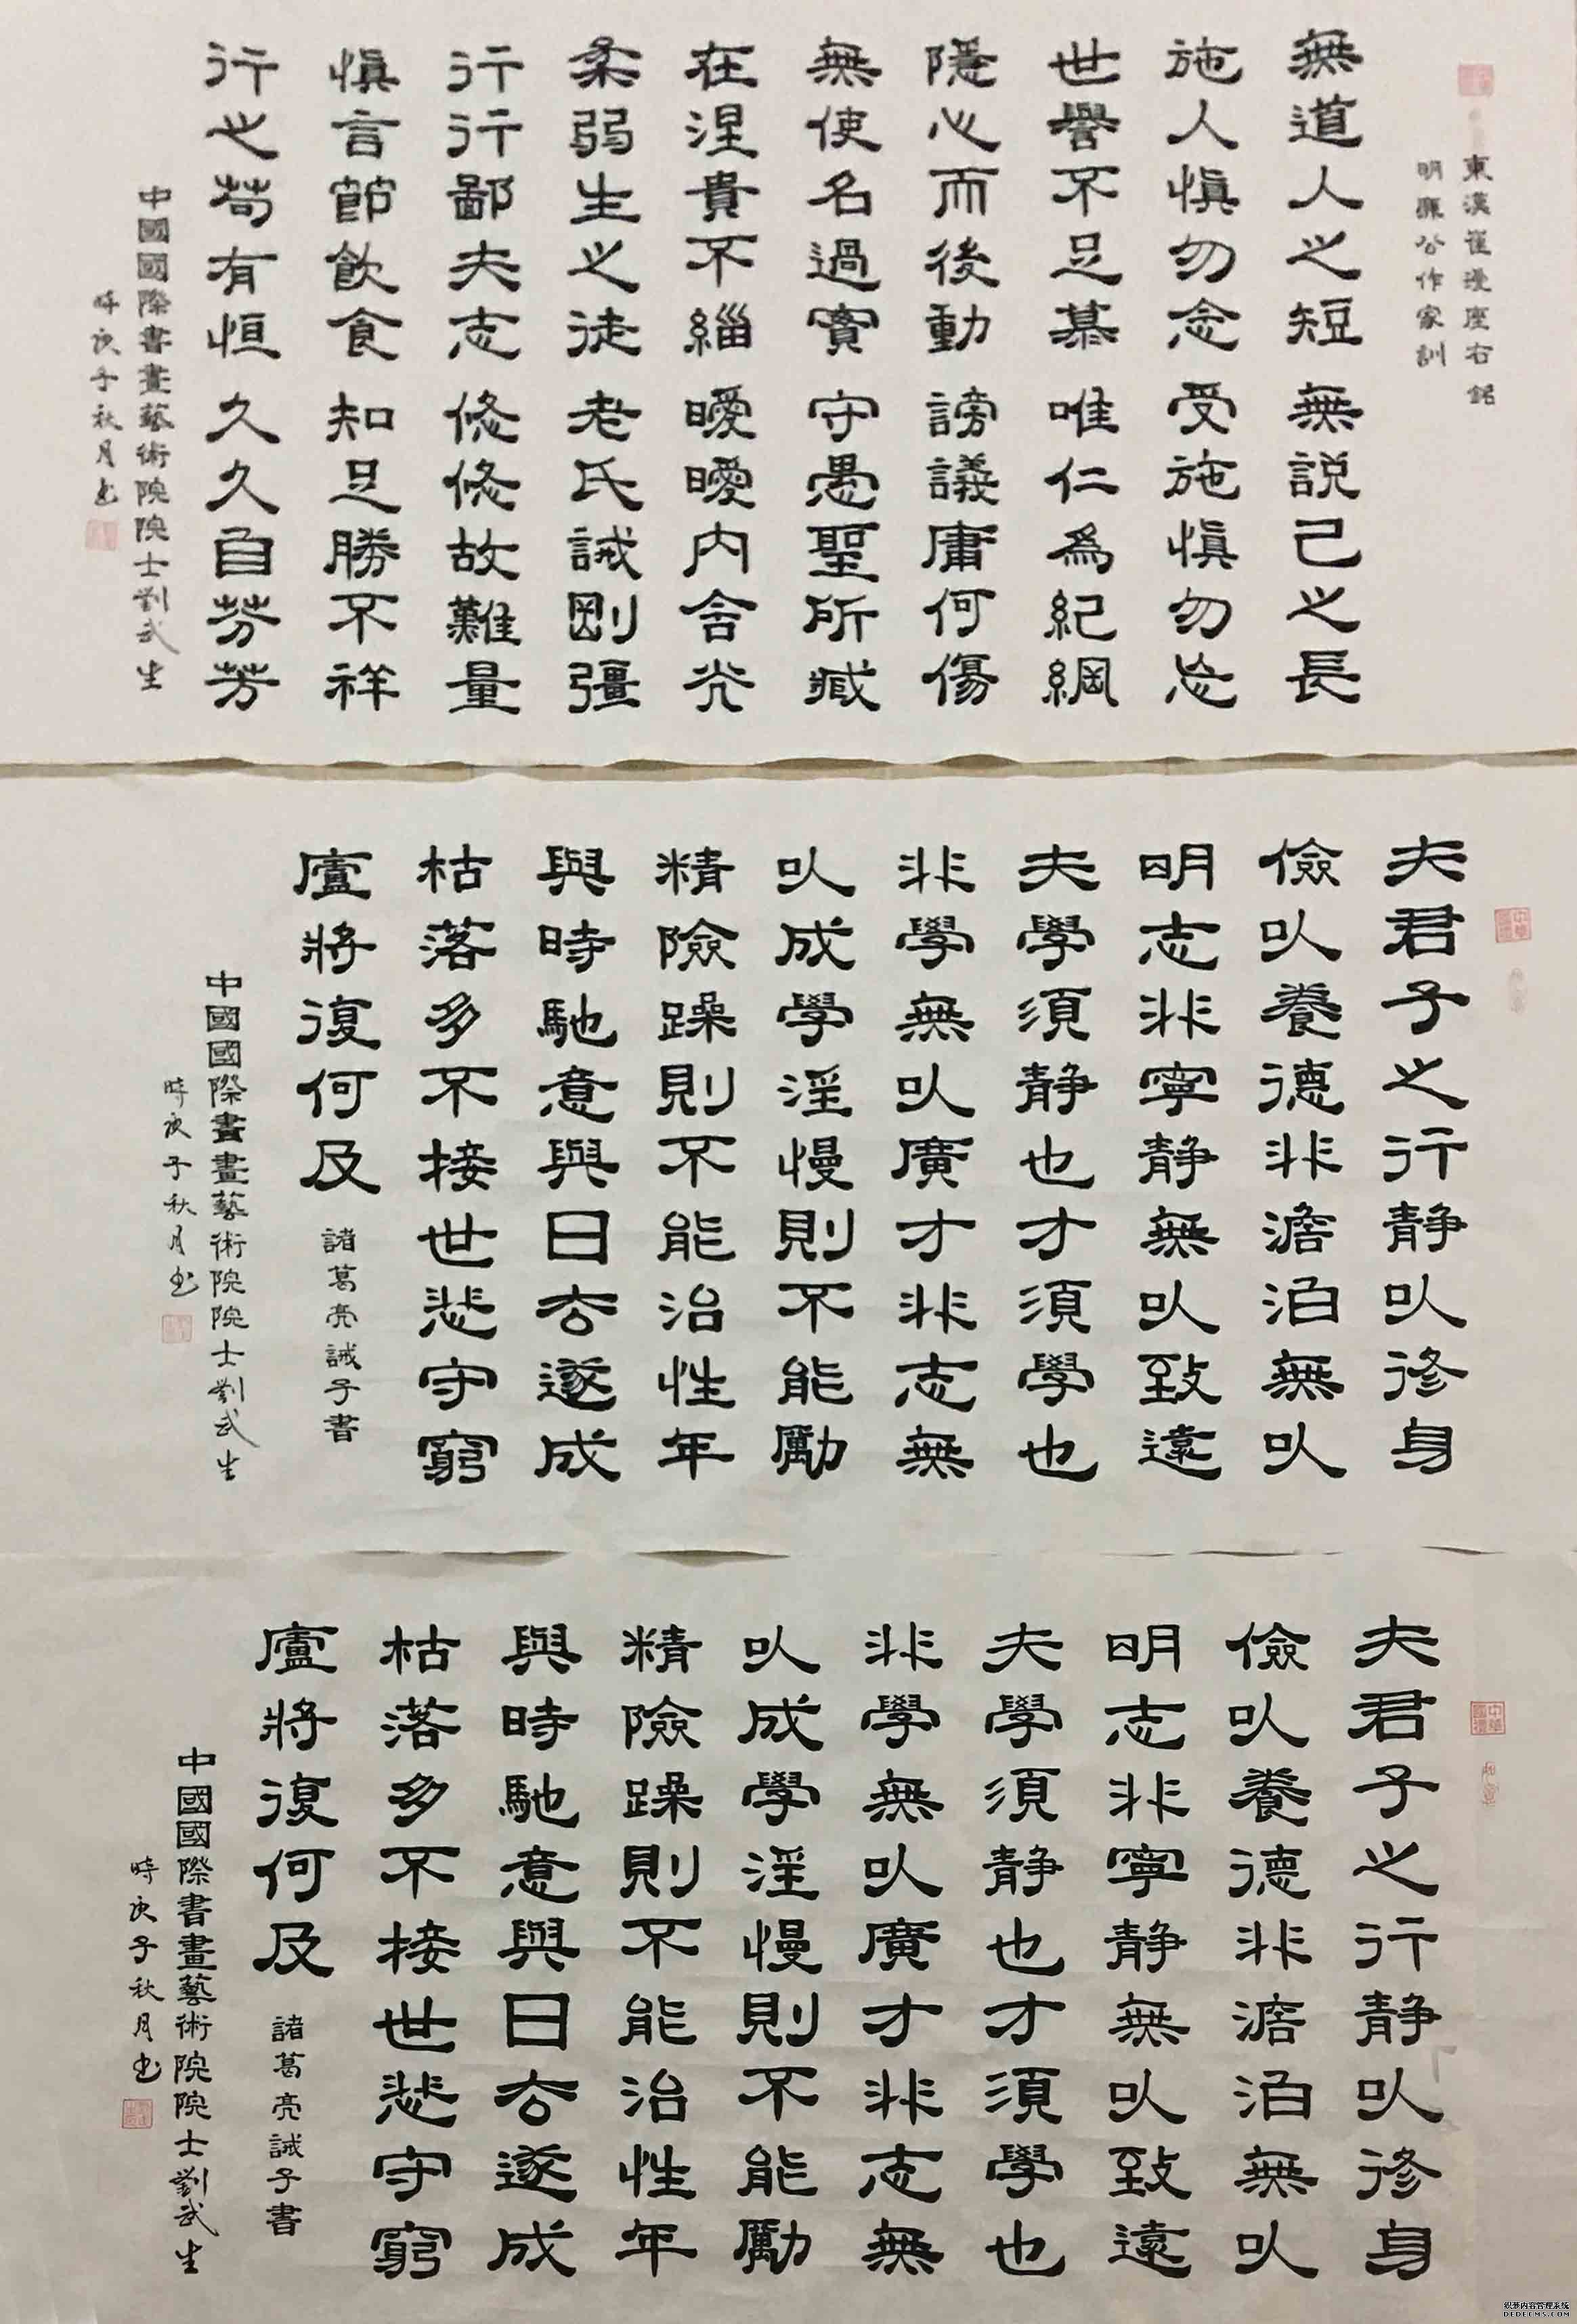 東漢崔瑗座右銘
明廉公作家訓
無道人之短無説己之長
施人慎勿念受施慎勿忘
世譽不足慕唯仁為紀綱
隱心而後動謗議庸何傷
無使名過實守愚聖所臧
在涅貴不緇曖曖內含光
柔弱生之徒老氏誡剛彊
行行鄙夫志悠悠故難量
慎言節飲食知足勝不祥
行之苟有恒久久自芬芳
中國國際書畫藝術院院士劉武生
時庚子秋月書
夫君子之行静以修身
儉以養德非澹泊無以
明志非寧静無以致遠
夫學須静也才須學也
非學無以廣才非志無
以成學淫慢則不能勵
精險躁則不能治性年
與時馳意與日去遂成
枯落多不接世悲守窮
廬將復何及
諸葛亮誡子書
中國國際書畫藝術院院士劉武生
時庚子秋月书
夫君子之行静以修身
儉以養德非澹泊無以
明志非寧静無以致遠
夫學須静也才須學也
非學無以廣才非志無
以成學淫慢則不能勵
精險躁則不能治性年
與時馳意與日去遂成
枯落多不接世悲守窮
廬將復何及
諸葛亮誡子書
中國國際書畫藝術院院士劉武生
時庚子秋月书
织梦内容管理系统
DEDECMS.COM